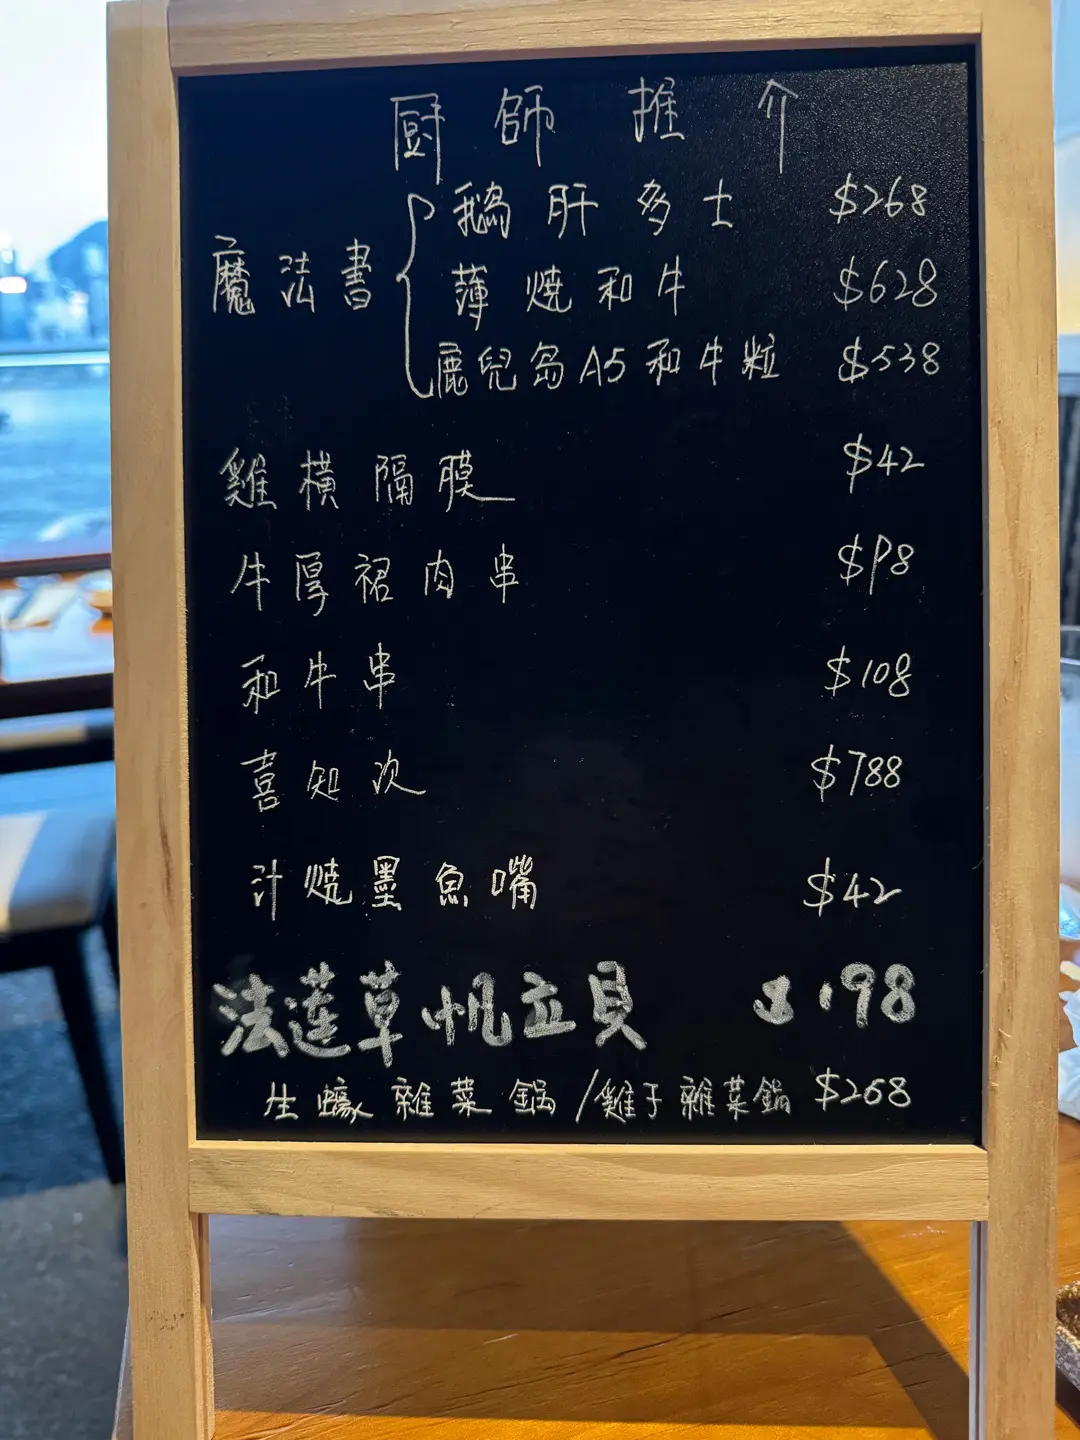 厨師推介
魔法書
鵝肝多士 $268
薄燒和牛 $628
鹿兒島A5和牛粒 $538
雞橫隔膜 $42
牛厚裙肉串 $98
和牛串 $108
喜知次 $788
汁燒墨魚嘴 $42
法蓮草帆立貝 $198
生蠔雜菜鍋/雞子雜菜鍋 $268